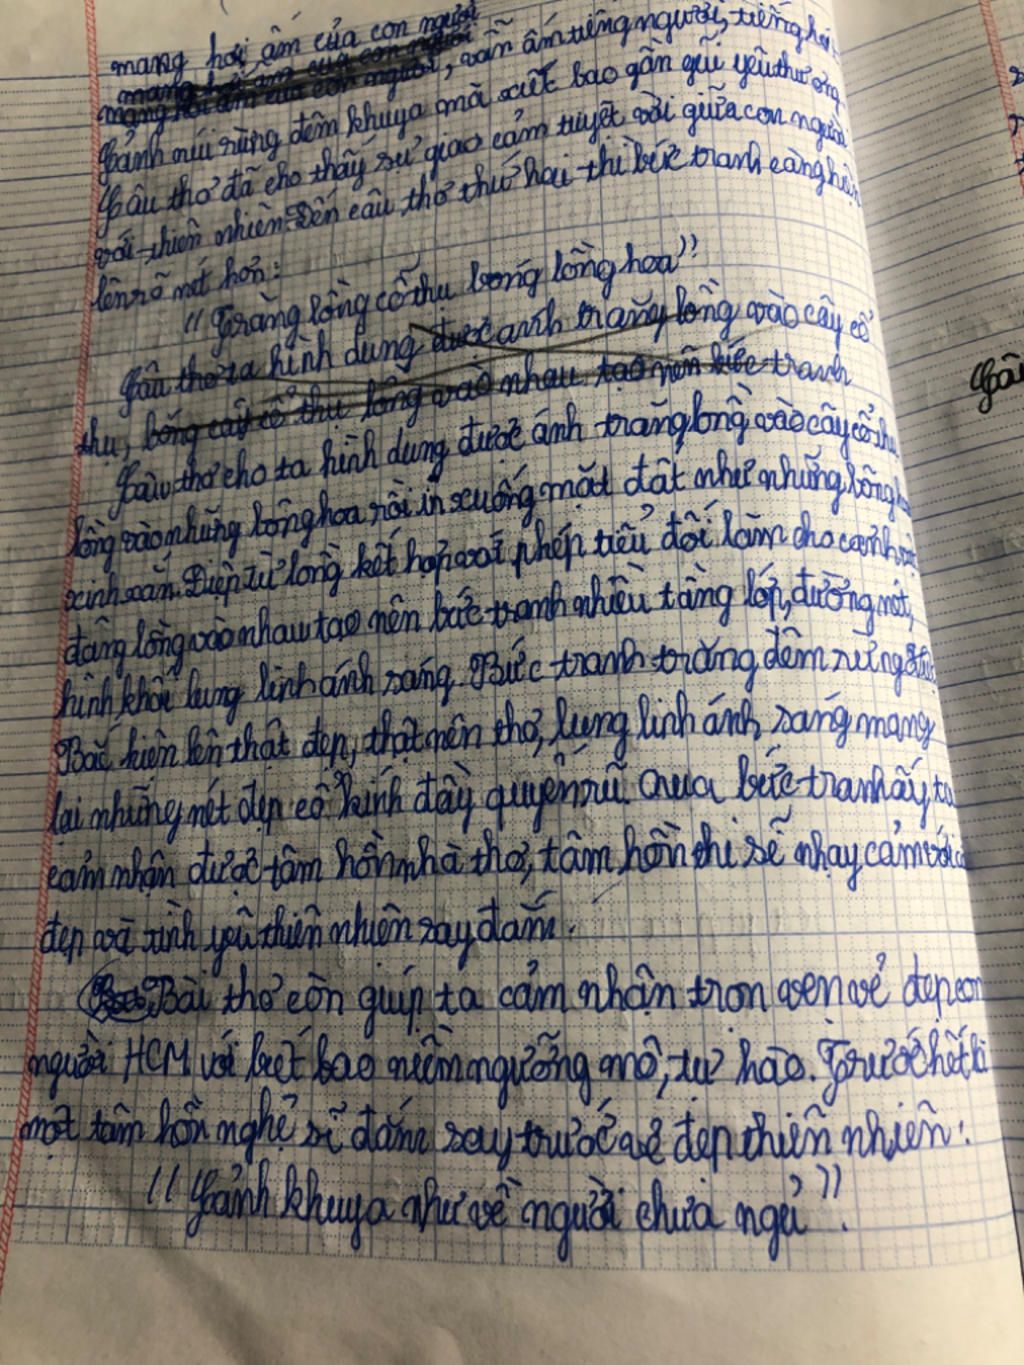 mang hơi ấm của con người
mang hơi ấm của con người, vẫn ấm tiếng người, tiếng hát.
Cảnh núi rừng đêm khuya mà xiết bao gần gũi yêu thương.
Câu thơ đã cho thấy sự giao cảm tuyệt vời giữa con người
với thiên nhiên. Đến câu thơ thứ hai thì bức tranh càng hiện
lên rõ nét hơn:
"Trăng lồng cổ thụ bóng lồng hoa"
Câu thơ ta hình dung được ánh trăng lồng vào cây cổ
thụ, bóng cây cổ thụ lồng vào nhau tạo nên bức tranh
Câu thơ cho ta hình dung được ánh trăng lồng vào cây cổ thụ
lồng vào những bông hoa rồi in xuống mặt đất như những bông hoa
xinh xắn. Điệp từ lồng kết hợp với phép tiểu đối làm cho cảnh
đang lồng vào nhau tạo nên bức tranh nhiều tầng lớp, đường nét,
hình khối lung linh ánh sáng. Bức tranh trăng đêm rừng
Bắc hiện lên thật đẹp, thật nên thơ, lung linh ánh sáng mang
lại những nét đẹp cổ kính đầy quyến rũ. Qua bức tranh ấy ta
cảm nhận được tâm hồn nhà thơ, tâm hồn thi sĩ nhạy cảm với cái
đẹp và tình yêu thiên nhiên say đắm.
Bài thơ còn giúp ta cảm nhận trọn vẹn vẻ đẹp con
người HCM với biết bao niềm ngưỡng mộ, tự hào. Trước hết là
một tâm hồn nghệ sĩ đắm say trước vẻ đẹp thiên nhiên:
"Cảnh khuya như vẽ người chưa ngủ".